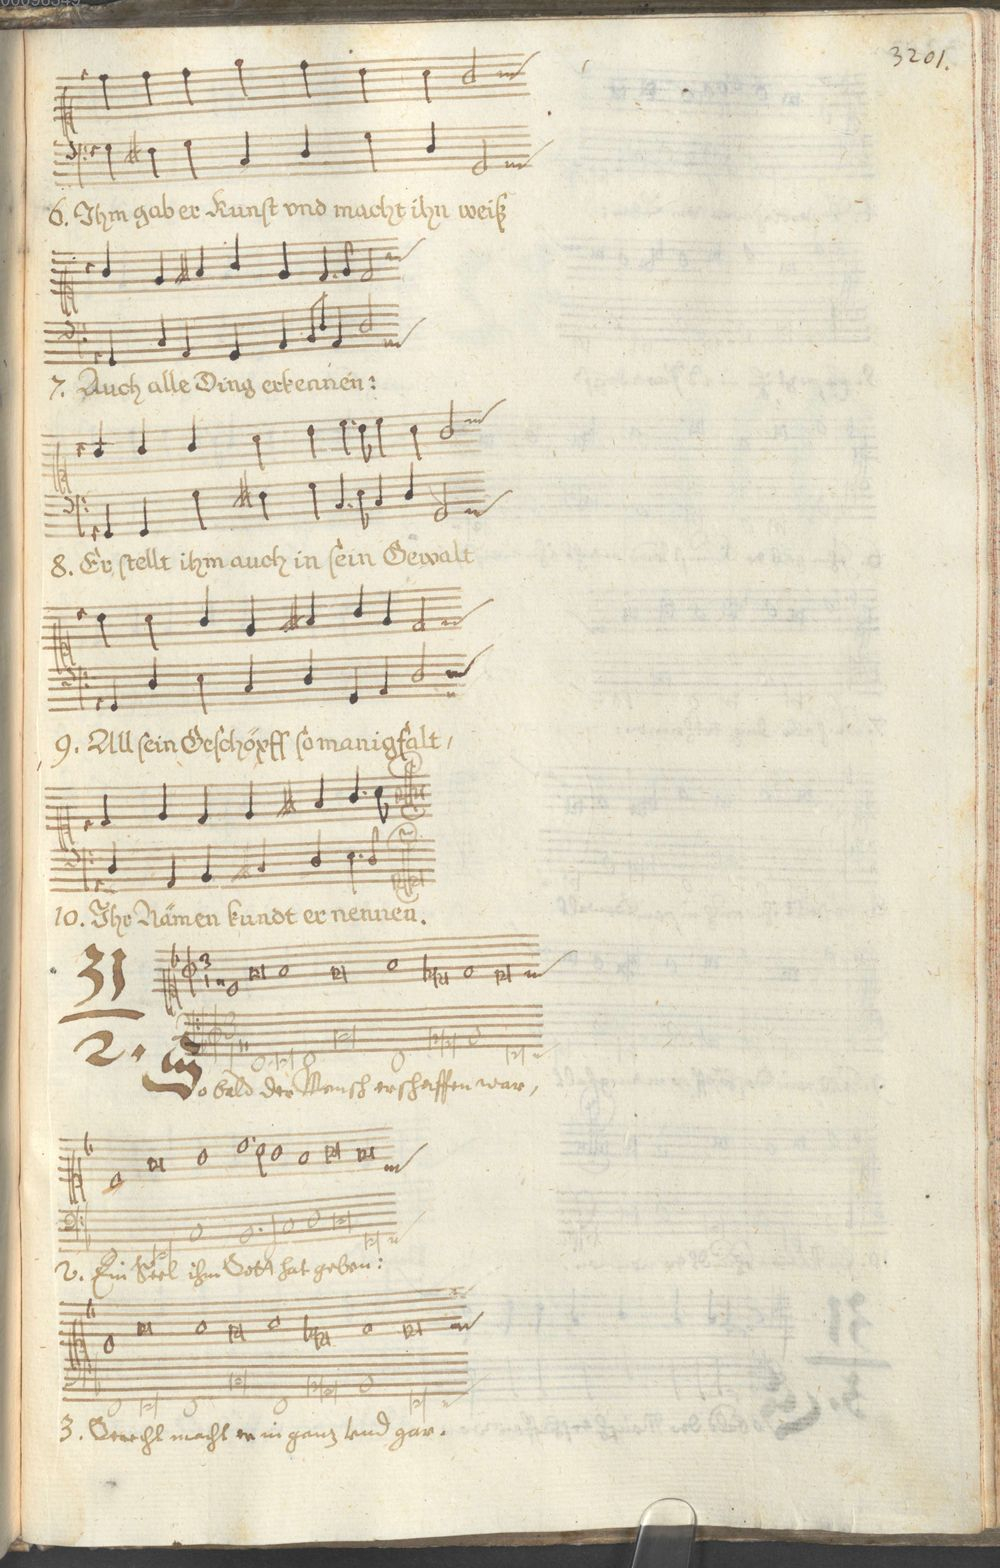 3201.
6. Ihm gab er Kunst vnd macht ihn weiß
7. Auch alle Ding erkennen:
8. Er stellt ihm auch in sein Gewalt
9. All sein Geschöpff so manigfalt,
10. Ihr Nämen kundt er nennen.
31
2.
So bald der Mensch erschaffen war,
2. Ein Seel ihm Gott hat geben:
3. Grecht macht er in ganz vnd gar.